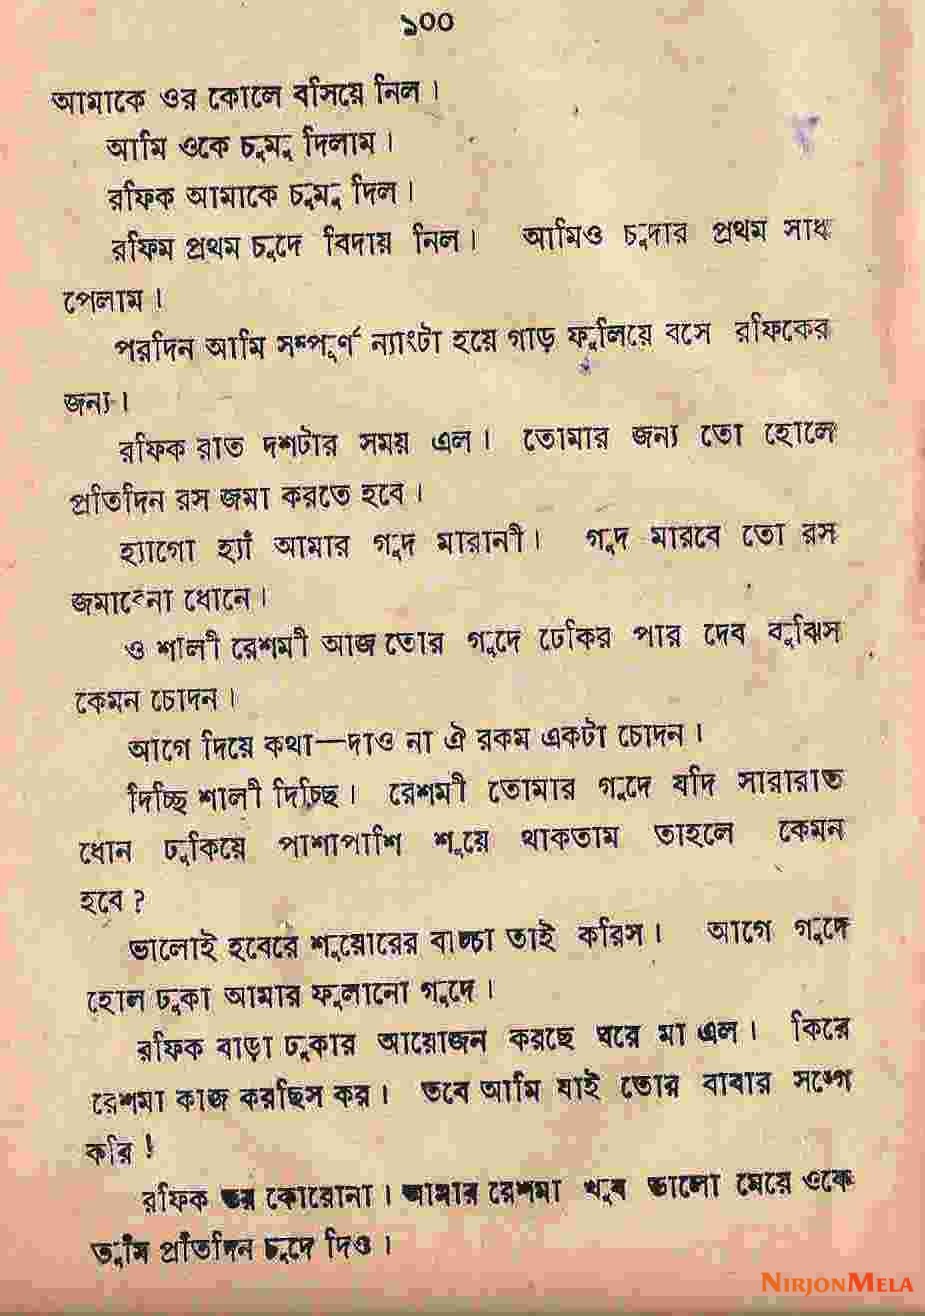 ১০০
আমাকে ওর কোলে বসিয়ে নিল।
আমি ওকে চুমু দিলাম।
রফিক আমাকে চুমু দিল।
রফিম প্রথম চুদে বিদায় নিল। আমিও চুদার প্রথম সাধ
পেলাম।
পরদিন আমি সম্পূর্ণ ন্যাংটা হয়ে গাড় ফুলিয়ে বসে রফিকের
জন্য।
রফিক রাত দশটার সময় এল। তোমার জন্য তো হোলে
প্রতিদিন রস জমা করতে হবে।
হ্যাগো হ্যাঁ আমার গুদ মারানী। গুদ মারবে তো রস
ধোনে।
ও শালী রেশমী আজ তোর গুদে ঢেকির পার দেব বুঝিস
কেমন চোদন।
আগে দিয়ে কথা—দাও না ঐ রকম একটা চোদন।
দিচ্ছি শালী দিচ্ছি। রেশমী তোমার গুদে যদি সারারাত
ধোন ঢুকিয়ে পাশাপাশি শুয়ে থাকতাম তাহলে কেমন
হবে?
ভালোই হবেরে শুয়োরের বাচ্চা তাই করিস। আগে গুদে
হোল ঢুকা আমার ফুলানো গুদে।
রফিক বাড়া ঢুকার আয়োজন করছে ঘরে মা এল। কিরে
রেশমা কাজ করছিস কর। তবে আমি যাই তোর বাবার সঙ্গে
করি!
রফিক ভয় কোরোনা। আমার রেশমা খুব ভালো মেয়ে ওকে
তুমি প্রতিদিন চুদে দিও।
NIRJONMELA